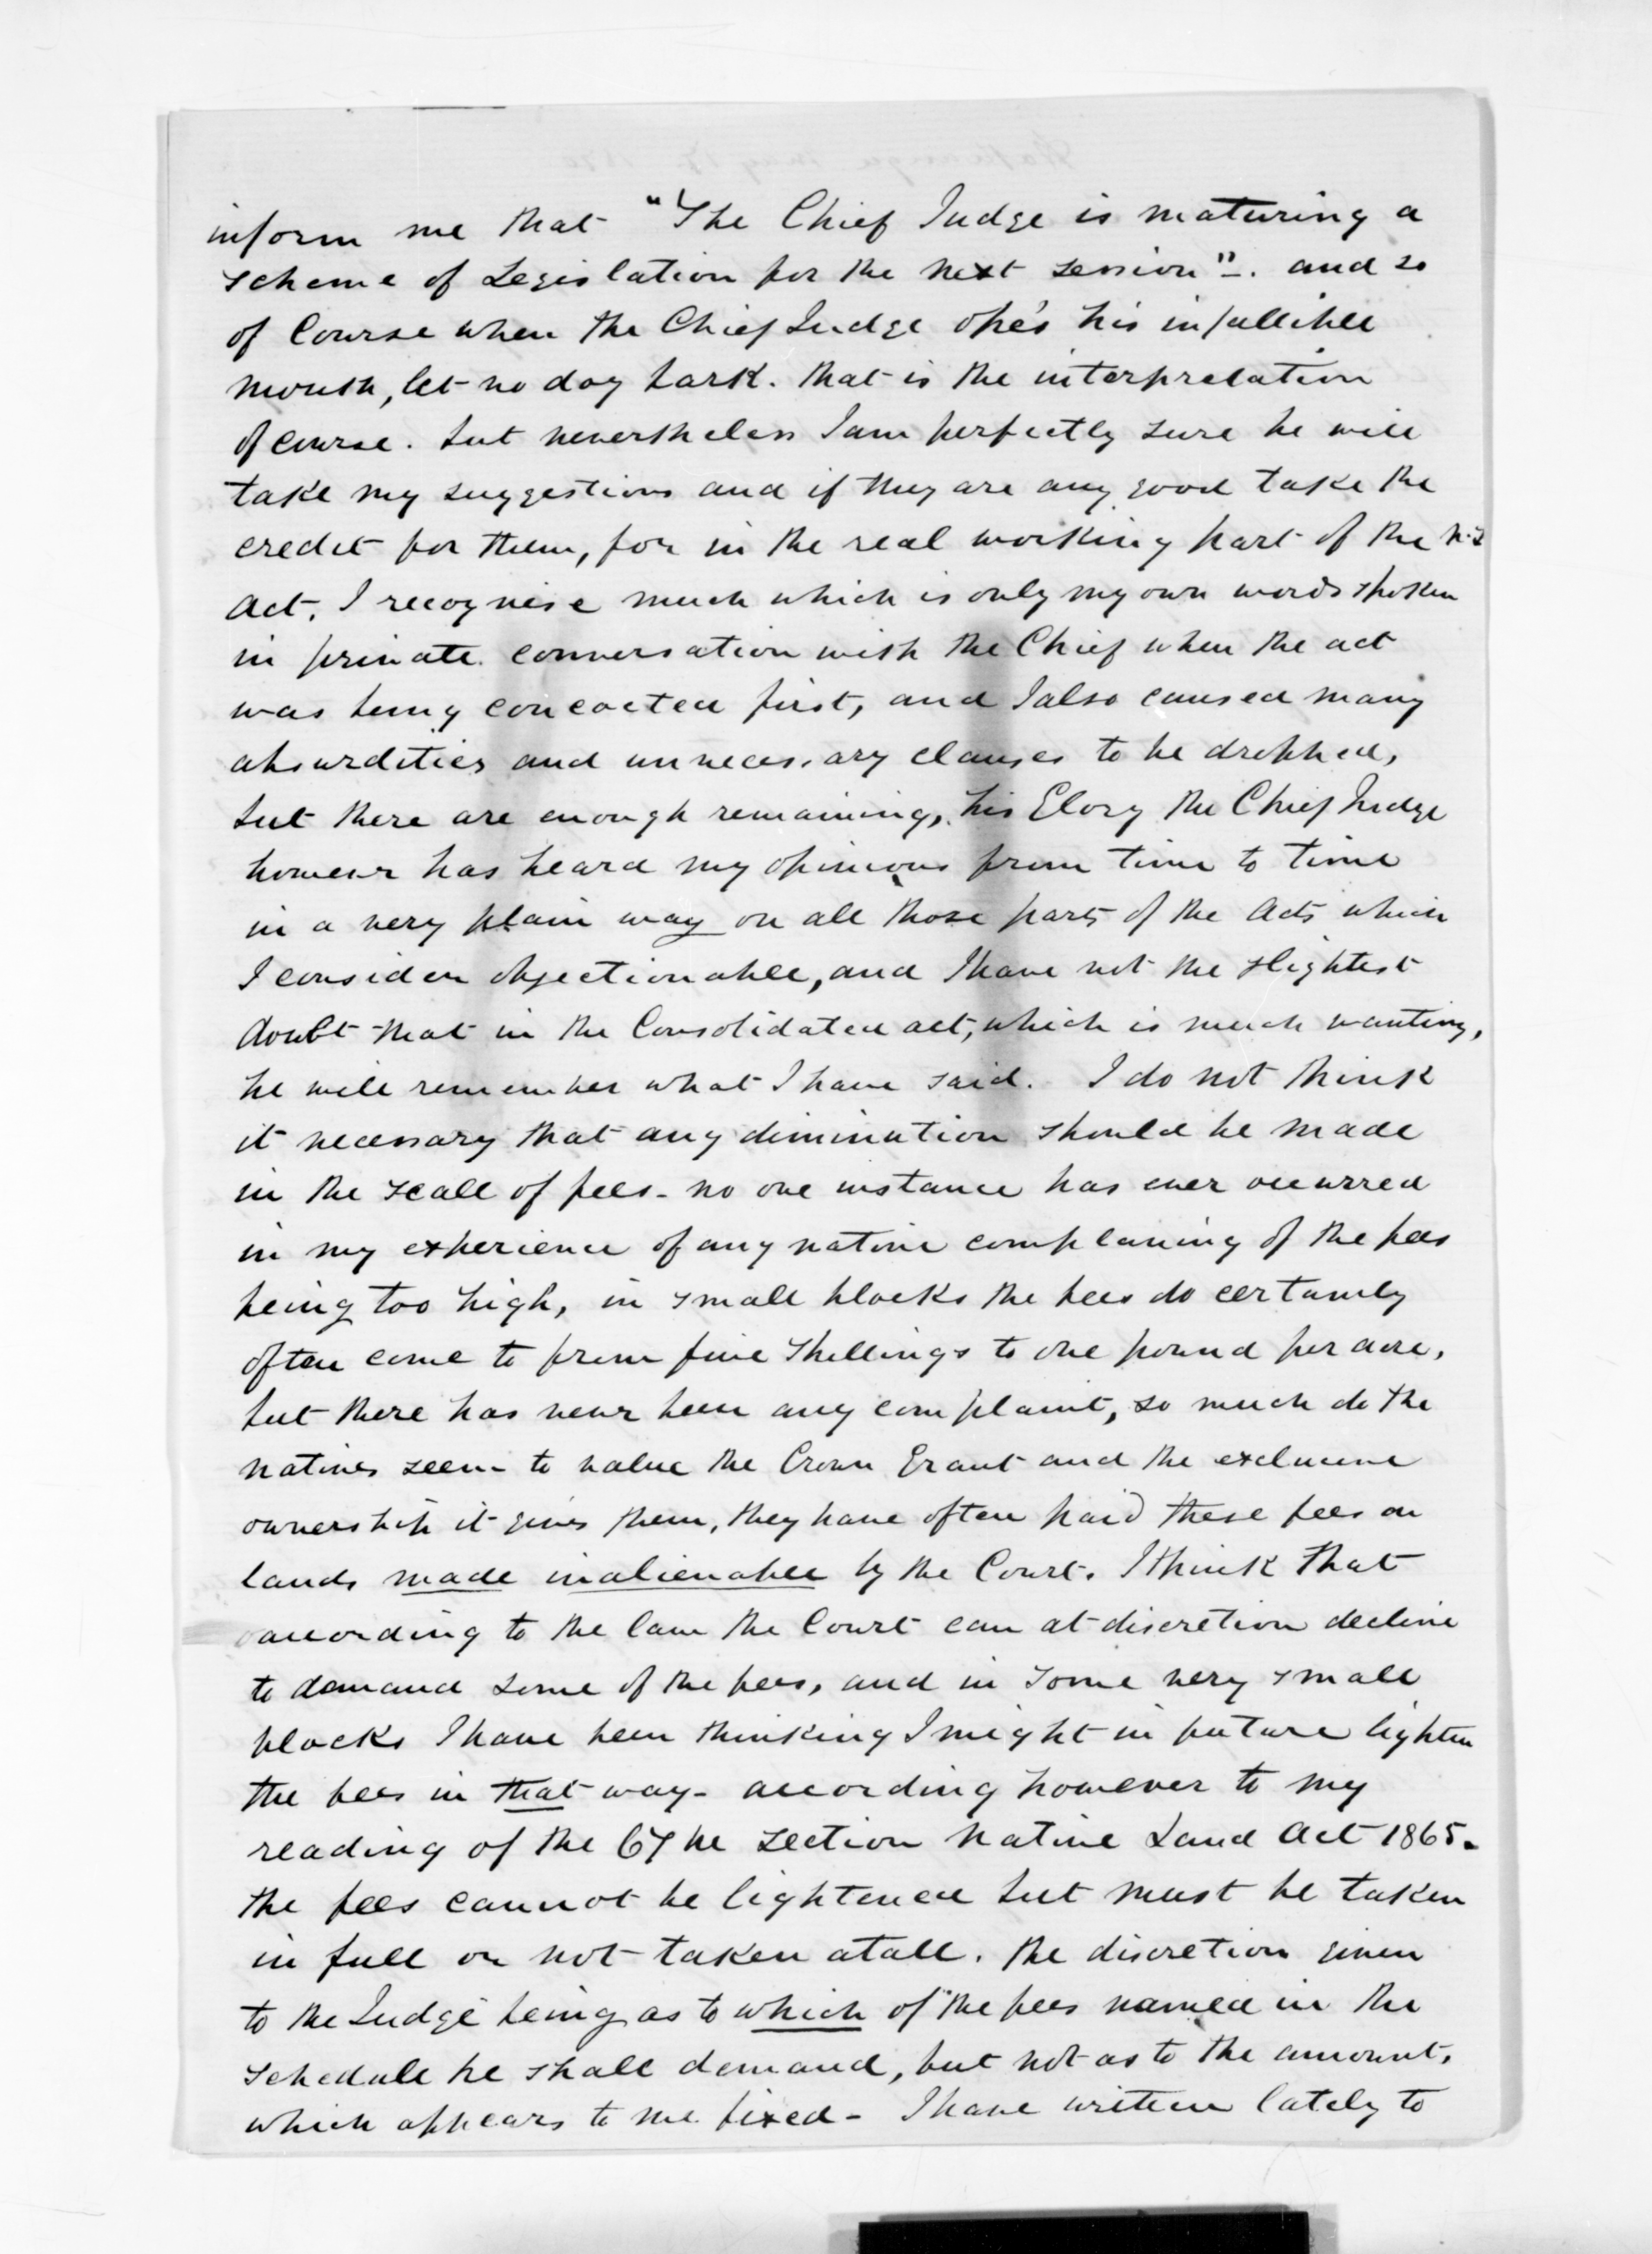 inform me that "The Chief Judge is maturing a
scheme of Legislation for the next session". and so
of Course when the Chief Judge ope's his infallible
mouth, let no dog bark. that is the interpretation
of course. but nevertheless I am perfectly sure he will
take my suggestions and if they are any good take the
credit for them, for in the real working part of the N.L
Act, I recognise much which is only my own words spoken
in private conversation with the Chief when the act
was being concocted first, and I also caused many
absurdities and unnecessary clauses to be dropped,
but there are enough remaining, his Glory the Chief Judge
however has heard my opinions from time to time
in a very plain way on all those parts of the Acts which
I consider objectionable, and I have not the slightest
doubt that in the Consolidated act, which is much wanting,
he will remember what I have said. I do not think
it necessary that any diminution should be made
in the scale of fees - no one instance has ever occurred
in my experience of any native complaning of the fees
being too high, in small blocks the fees do certainly
often come to from five shillings to one pound per acre,
but there has never been any complaint, so much do the
natives seem to value the Crown Grant and the exclusive
ownership it gives them, they have often paid these fees on
lands made inalienable by the Court. I think that
according to the law the Court can at discretion decline
to demand some of the fees, and in some very small
blocks I have been thinking I might in future lighten
the fees in that way - according however to my
reading of the 67 he section Native Land Act 1865.
the fees cannot be lightened but must be taken
in full or not taken at all. the discretion given
to the Judge being as to which of the fees named in the
schedule he shall demand, but not as to the amount,
which appears to me fixed - I have written lately to